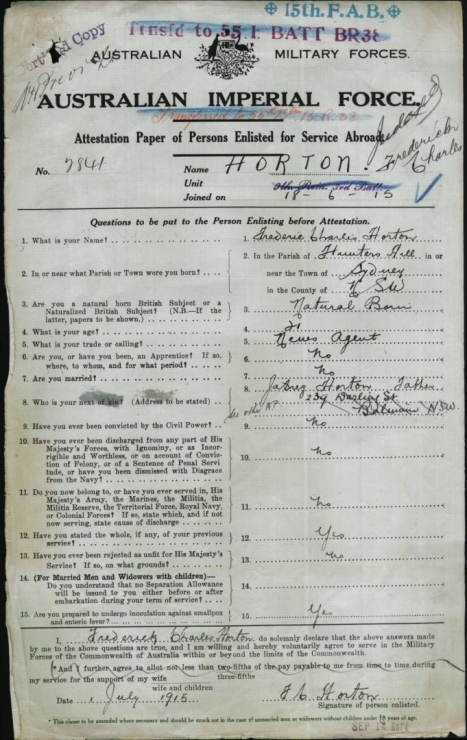 15th. F.A.B.
Trnsf'd to 55 F. BATT BR38
AUSTRALIAN MILITARY FORCES.
AUSTRALIAN IMPERIAL FORCE.
Attestation Paper of Persons Enlisted for Service Abroad.
Frederick Charles
No. 2841
Name HORTON.
Unit
Joined on 18-6-15
Questions to be put to the Person Enlisting before Attestation.
1. What is your Name? 1. Frederic Charles Horton
2. In or near what Parish or Town were you born? 2. In the Parish of Hunters Hill in or
near the Town of Sydney
in the County of NSW
3. Are you a natural born British Subject or a
Naturalized British Subject? (N.B.—If the
latter, papers to be shown.) 3. Natural Born
4. What is your age? 4. 21
5. What is your trade or calling? 5. News Agent
6. Are you, or have you been, an Apprentice? If so,
where, to whom, and for what period? 6. No
7. Are you married? 7. No
8. Who is your next of kin? (Address to be stated) 8. Horton Father
239 Darling St
Balmain NSW.
9. Have you ever been convicted by the Civil Power? 9. No
10. Have you ever been discharged from any part of His
Majesty's Forces, with Ignominy, or as Incor-
rigible and Worthless, or on account of Convic-
tion of Felony, or of a Sentence of Penal Servi-
tude, or have you been dismissed with Disgrace
from the Navy? 10. No
11. Do you now belong to, or have you ever served in, His
Majesty's Army, the Marines, the Militia, the
Militia Reserve, the Territorial Force, Royal Navy,
or Colonial Forces? If so, state which, and if not
now serving, state cause of discharge 11. No
12. Have you stated the whole, if any, of your previous
service? 12. Yes
13. Have you ever been rejected as unfit for His Majesty's
Service? If so, on what grounds? 13. No
14. (For Married Men and Widowers with children)—
Do you understand that no Separation Allowance
will be issued to you either before or after
embarkation during your term of service? 14.
15. Are you prepared to undergo inoculation against smallpox
and enteric fever? 15. Yes
I, Frederick Charles Horton, do solemnly declare that the above answers made
by me to the above questions are true, and I am willing and hereby voluntarily agree to serve in the Military
Forces of the Commonwealth of Australia within or beyond the limits of the Commonwealth.
*And I further agree to allot not less than two-fifths of the pay payable to me from time to time during
three-fifths
my service for the support of my wife
wife and children
Date 1 July 1915 F. C. Horton
Signature of person enlisted.
* This clause should be amended where necessary and should be struck out in the case of unmarried men or widowers without children under 18 years of age.